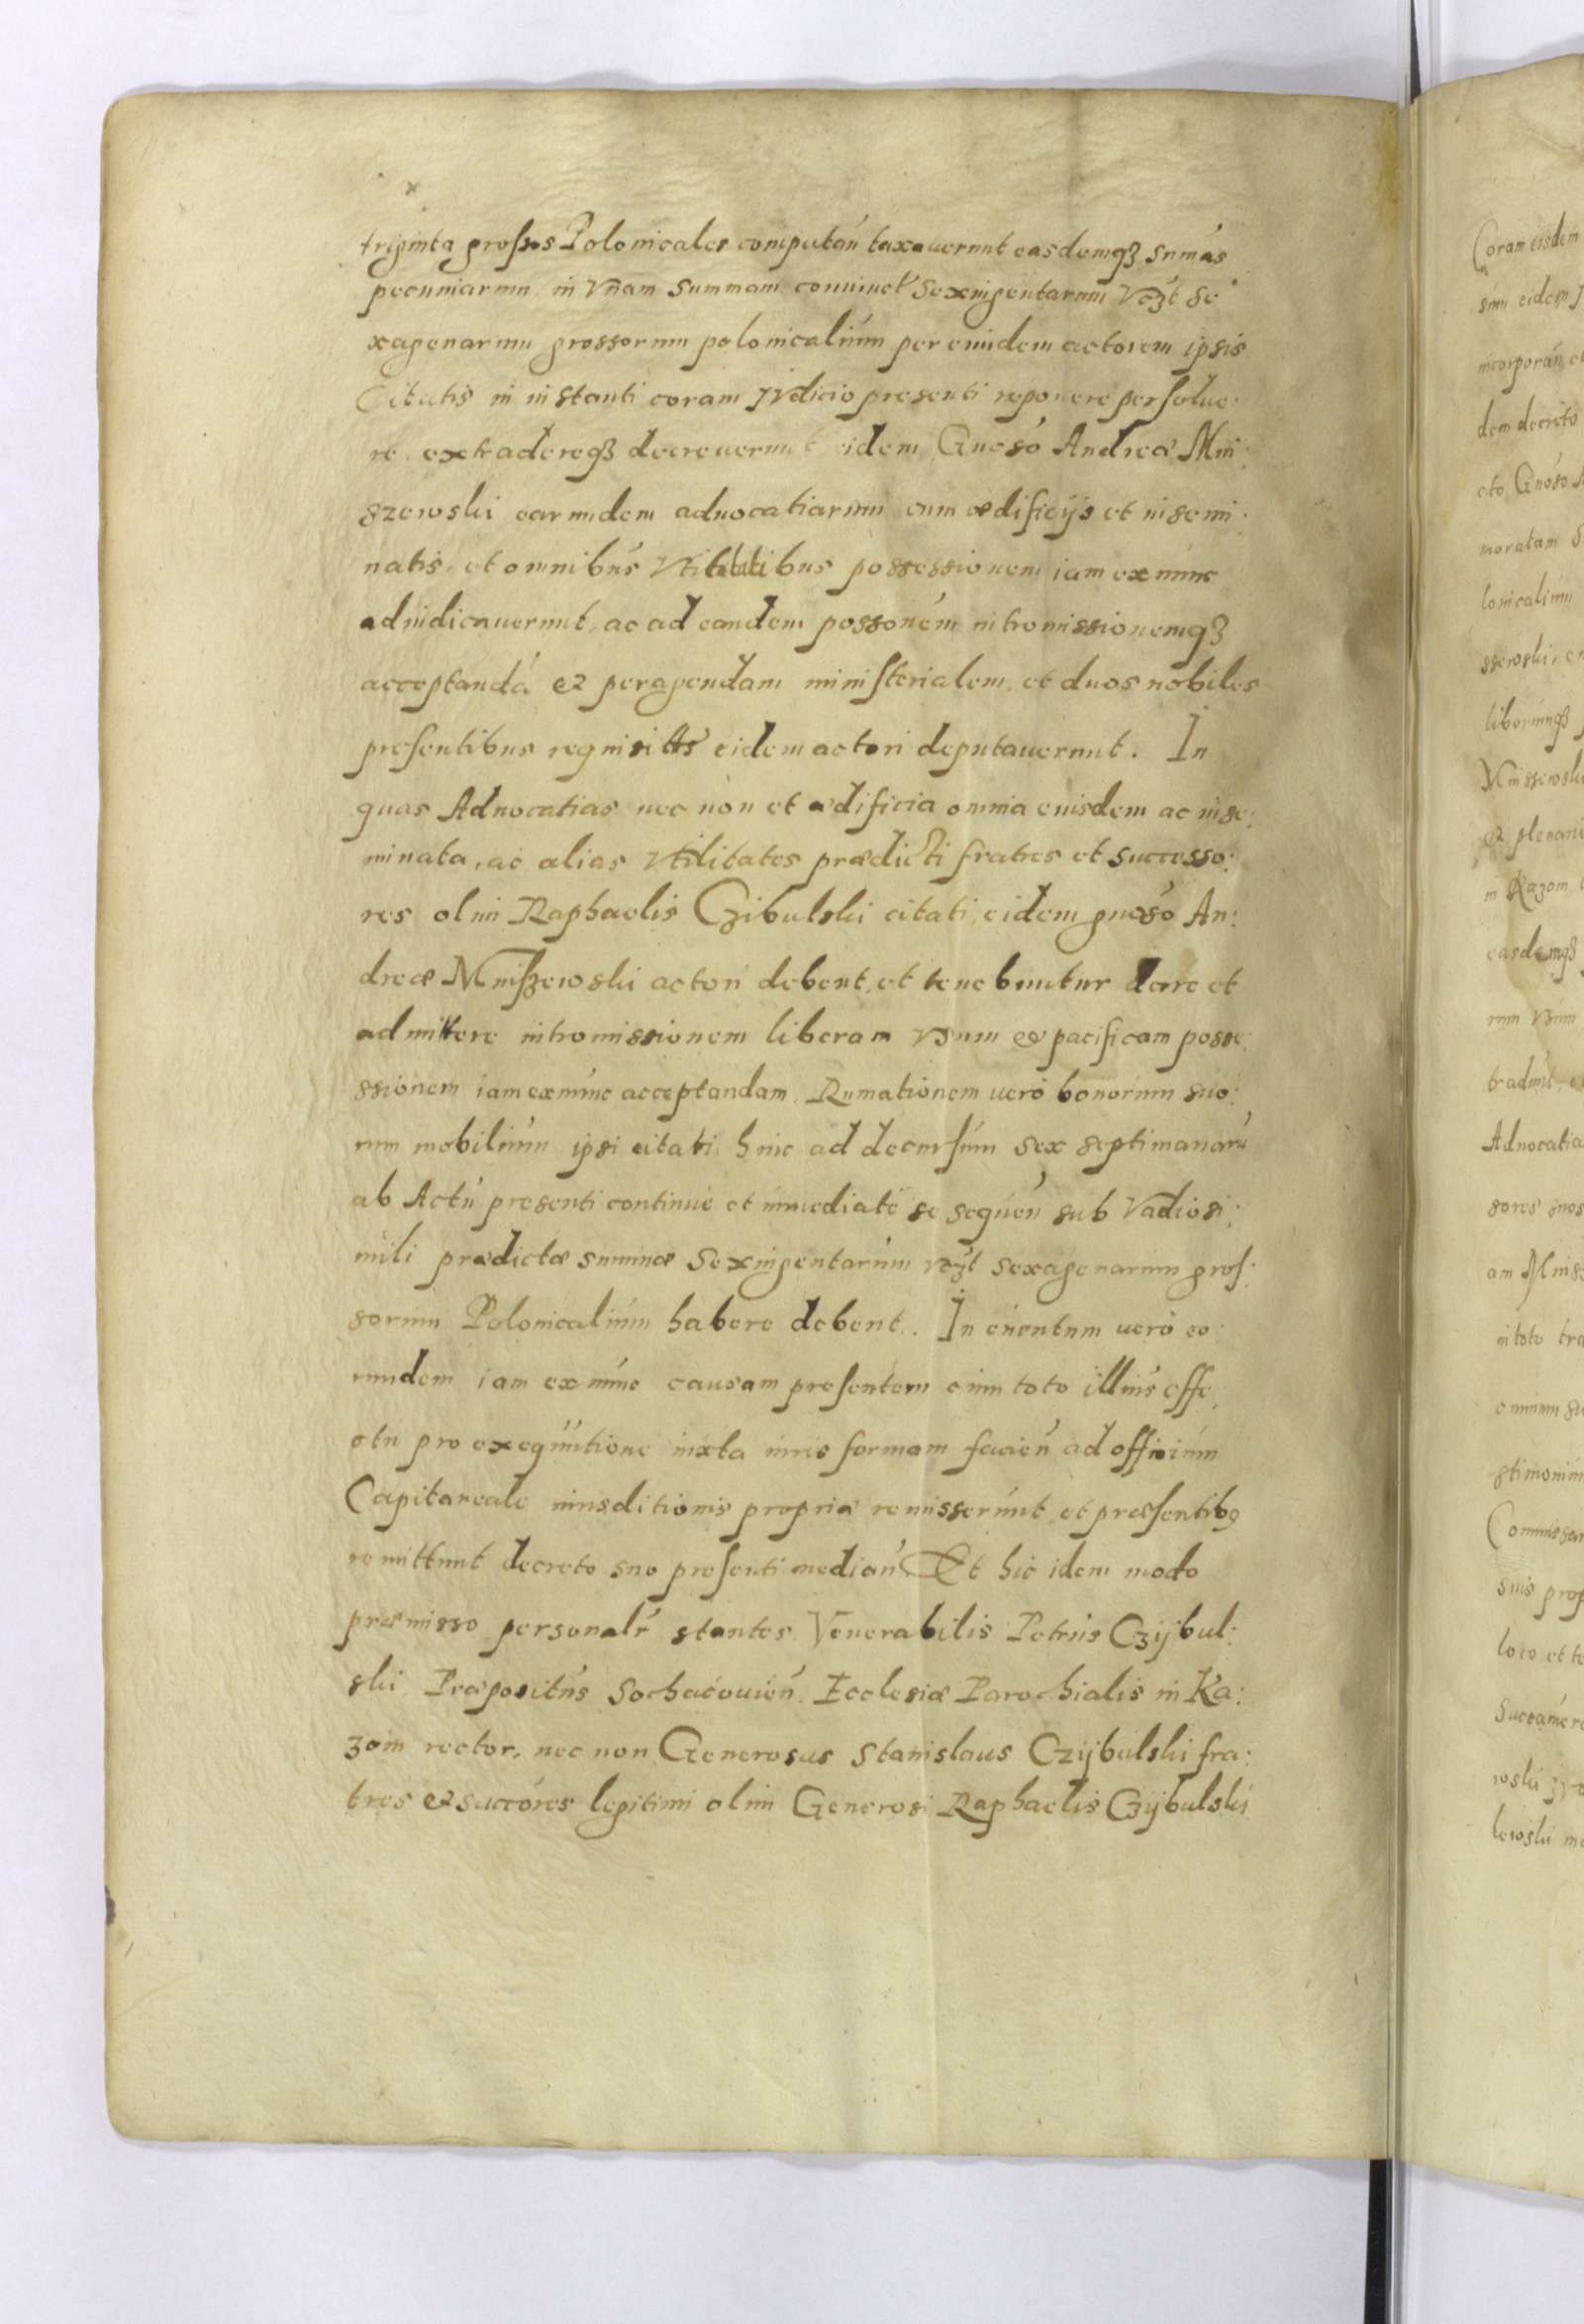 triginta grossos Polonicales computań taxauerunt easdemqȝ sumás
pecuniarum in vnam summam conuiuet Sexingentarum vȝt se
xagenarum grossorum polonicalium per eundem actorem ipsis
Citatis in instanti coram Jvdicio presenti reponere persolue:
re extradereqȝ decreuerunt eidem Gneso Andreæ Mni:
szewski earundem aduocatiarum cum ædificijs et insemi:
natis, et omnibus vtilitatibus possessionem iam ex nunc
adiudicauerunt, ac ad eandem possoném intromissionemqȝ
acceptandá et peragendam ministerialem et duos nobiles
presentibus requisitis eidem actori deputauerunt. In
quas Aduocatias nec non et ædificia omnia eiusdem ac inse:
minata, ac alias vtilitates prædicti fratres et successo:
res olim Raphaelis Czibulski citati eidem gneso An:
dreæ Mniszewski actori debent, et tenebuntur dare et
admittere intromissionem liberam vsum et pacificam posse:
ssionem iam ex nunc acceptandam. Rumationem uero bonorum suo:
rum mobilium ipsi citati hinc ad decursum sex septimanarū
ab Actu presenti continue et immediate se sequeń sub vadio si:
mili prædictæ summæ Sexingentarum vȝt sexagenarum gros:
sorum Polonicalium habere debent. In euentum uero eo:
rundem iam ex nunc causam presentem cum toto illius effe:
ctu pro exequutione iuxta iuris formam facień ad officium
Capitaneale iurisditionis propriæ remisserunt et præsentibꝫ
remittunt decreto suo presenti mediań Et hic idem modo
præmisso personalr stantes Venerabilis Petrus Czijbul:
ski Præpositus Sochacouień. Ecclesiæ Parochialis in Ka:
zom rector, nec non Generosus Stanislaus Czijbulski fra:
tres et succóres legitimi olim Generosi Raphaelis Czijbulski
Coram eisdem
sum eidem
incorporań et
dem decreto
cto Gnoso
moratam
lonicalium
ssewski,
liberumqȝ
Mnissewski
et plenari
in Kazom
easdemqȝ
rum vsum
tradunt,
Aduocatia
sores
am Mnis
in toto tra
omnium
stimonium
Commissar
suis prop
loco et
Succamer
wski
lewski